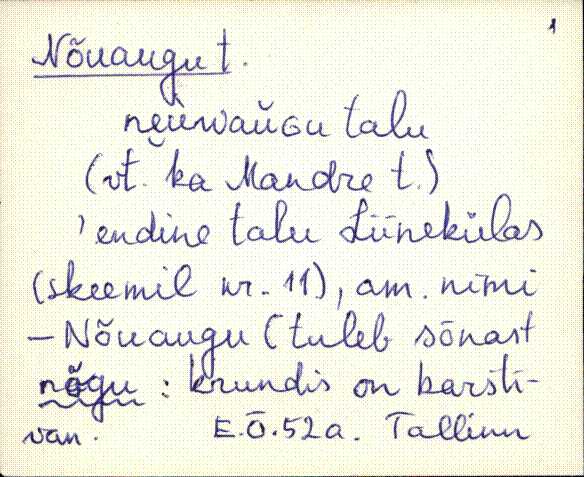 1
Nõuaugu t.
neiwaŭGu talu
(vt. ka Mandre t.)
'endine talu Liinekülas
(skeemil nr. 11), am. nimi
– Nõuaugu (tuleb sõnast
nõgu: krundis on karsti-
van. E.Õ.52a. Tallinn